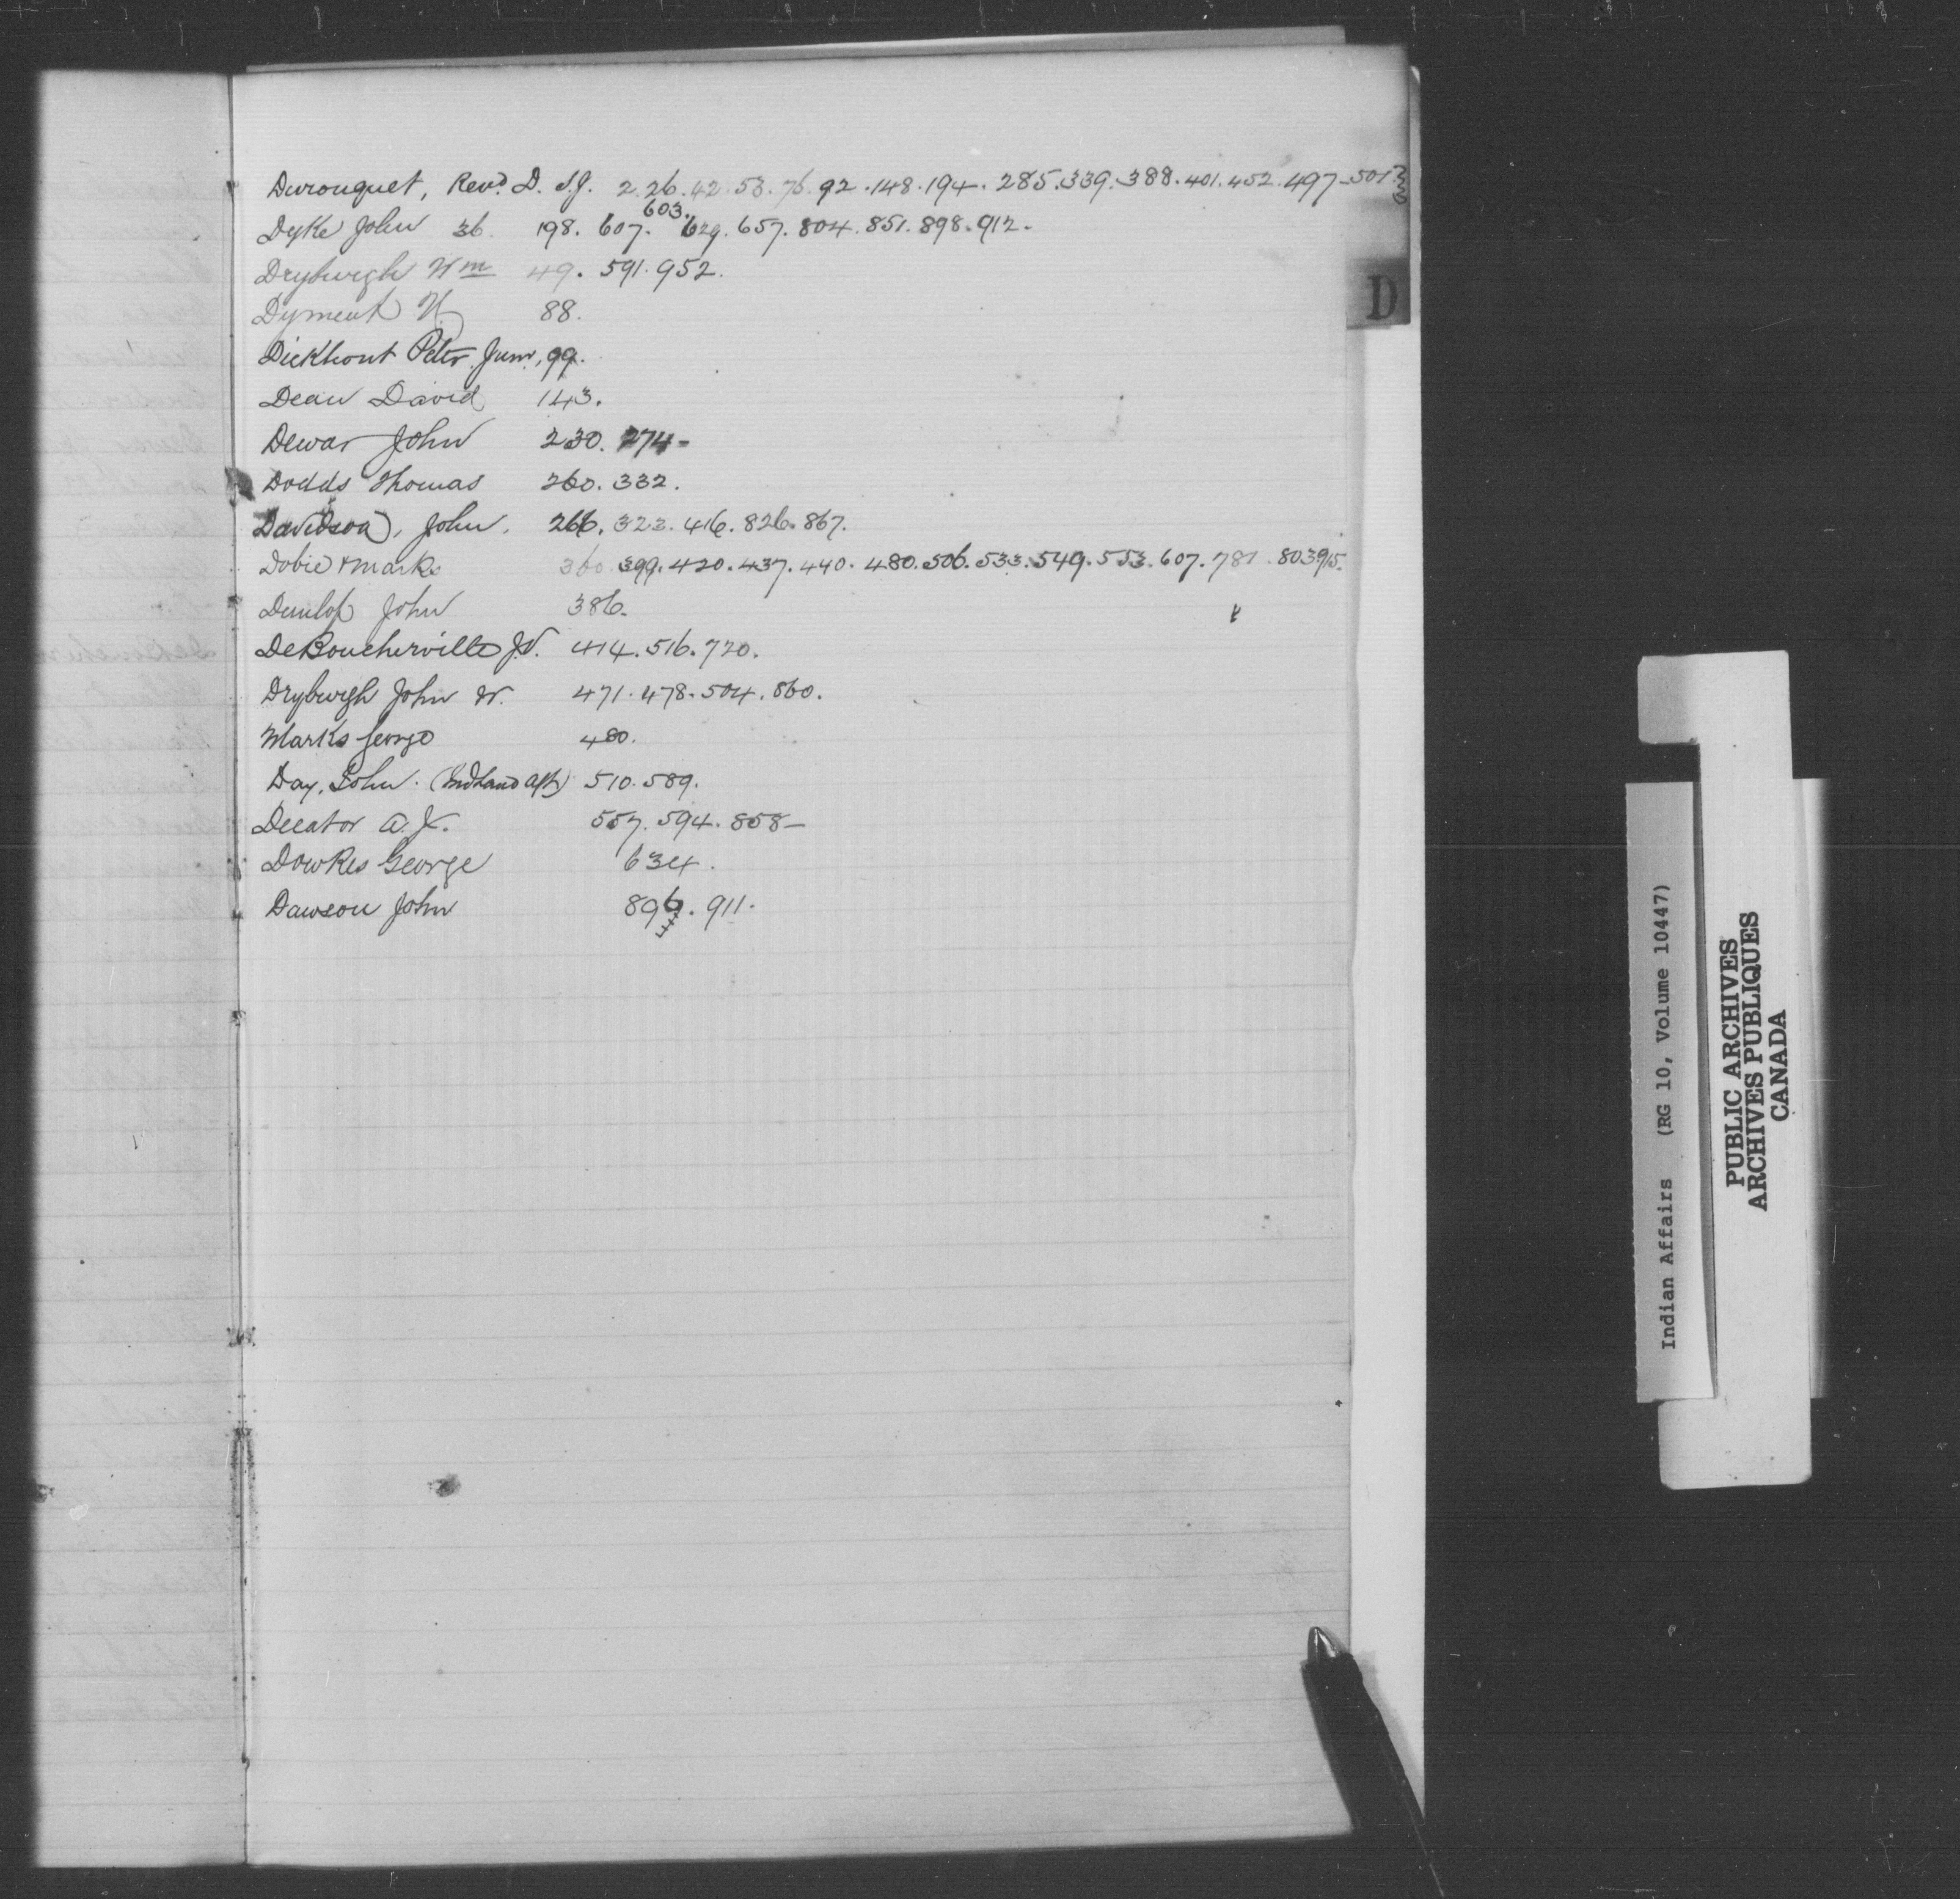 Durouquet, Revd. D. S.J. 2. 26. 42. 53. 76. 92. 148. 194. 285. 339. 388. 401. 452. 497-501
603.
Dyke John 36. 198. 607. 629. 657. 804. 851. 898. 912.
Dryburgh Wm 49. 591. 952.
Dyment N 88.
D
Dickhout Peter Junr, 99.
Dean David 143.
Dewar John 230. 274-
Dodds Thomas 260. 332.
Davidson, John. 266. 323. 416. 826. 867.
Dobie & Marks 360. 399. 420. 437. 440. 480. 506. 533. 549. 553. 607. 781. 803. 915.
Dunlop John 386.
DeBoucherville J.V. 414. 516. 720.
Dryburgh John W. 471. 478. 504. 860.
Marks George 480.
Day, John. (Ind Land Agt) 510. 589.
Decator A. J. 557. 594. 858-
Dowkes George 634.
Dawson John 896. 911.
Indian Affairs (RG 10, Volume 10447)
PUBLIC ARCHIVES
ARCHIVES PUBLIQUES
CANADA